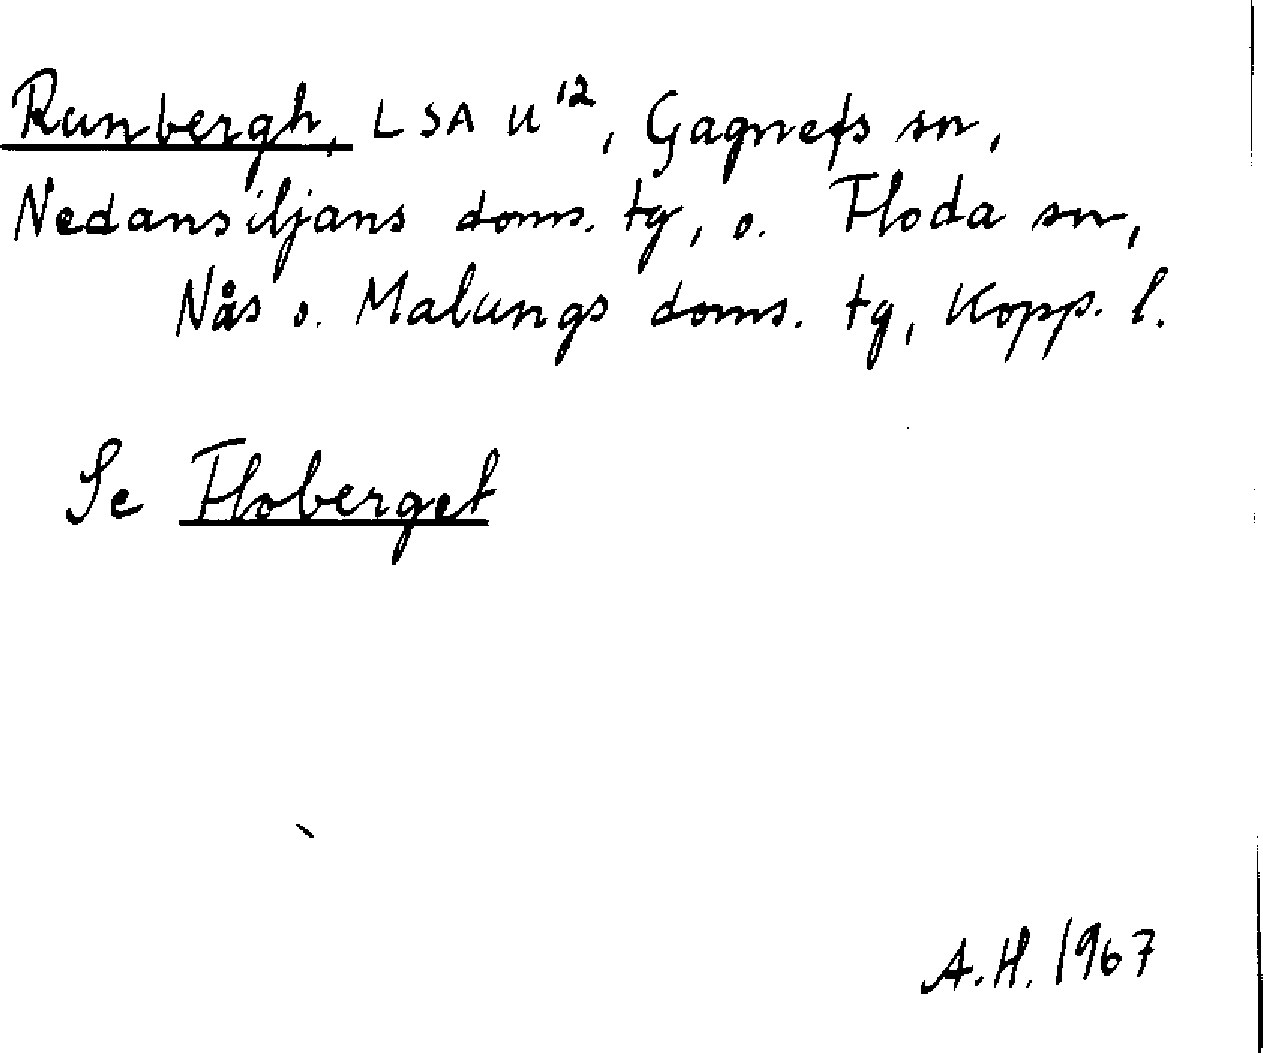 Runbergh, LSA U¹², Gagnefs sn,
Nedansiljans doms. tg, o. Floda sn,
Nås o. Malungs doms. tg, Kopp. l.
Se Floberget
A.H. 1967